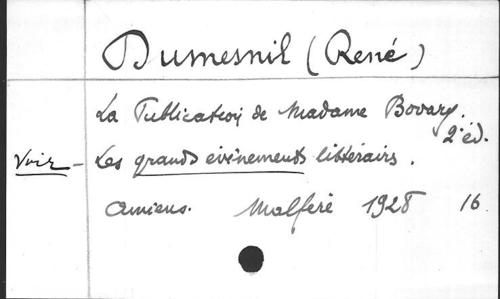 Dumesnil (René)
La Publication de Madame Bovary.
2e éd.
Voir - Les grands évènements littérairs.
Amiens. Malfère 1928 16